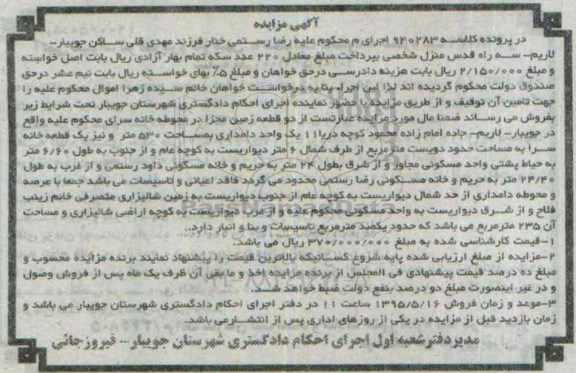 آگهی مزایده
در پرونده کلاسه 940283 اجرای م محکوم علیه رضا رستمی خنار فرزند مهدی قلی ساکن جویبار-
لاریم- سه راه قدس منزل شخصی بپرداخت مبلغ معادل 220 عدد سکه تمام بهار آزادی ریال بابت اصل خواسته
و مبلغ 2/150/000 ریال بابت هزینه دادرسی درحق خواهان و مبلغ 5% بهای خواسته ریال بابت نیم عشر درحق
صندوق دولت محکوم گردیده اند لذا این اجراء بنا به درخواست خواهان خانم سیده زهرا اموال محکوم علیه را
جهت تامین آن توقیف و از طریق مزایده با حضور نماینده اجرای احکام دادگستری شهرستان جویبار تحت شرایط زیر
بفروش می رساند ضمنا مال مورد مزایده عبارتست از دو قطعه زمین مجزا در محوطه خانه سرای محکوم علیه واقع
در جویبار- لاریم- جاده امام زاده محمود کوچه دریا 11 یک واحد دامداری بمساحت 530 متر و نیز یک قطعه خانه
سرا به مساحت حدود دویست مترمربع از طرف شمال 6 متر دیواریست به کوچه عام و از جنوب به طول 6/60 متر
به حیاط پشتی واحد مسکونی مجاور و از شرق بطول 24 متر به حریم و خانه مسکونی داود رستمی و از غرب به طول
24/40 متر به حریم و خانه مسکونی رضا رستمی محدود می گردد فاقد اعیانی و تاسیسات می باشد جمعا با عرصه
و محوطه دامداری از حد شمال دیواریست به کوچه عام از جنوب دیواریست به زمین شالیزاری متصرفی خانم زینب
فلاح و از شرق دیواریست به واحد مسکونی محکوم علیه و از غرب دیواریست به کوچه اراضی شالیزاری و مساحت
آن 235 مترمربع می باشد که حدود یکصد مترمربع تاسیسات و بنا و انبار دارد.
1-قیمت کارشناسی شده به مبلغ 370/000/000 ریال می باشد.
2-مزایده از مبلغ ارزیابی شده پایه شروع کسانیکه بالاترین قیمت را پیشنهاد نمایند برنده مزایده محسوب و
مبلغ ده درصد قیمت پیشنهادی فی المجلس از برنده مزایده اخذ و مابقی آن ظرف یک ماه پس از فروش وصول
و در غیر اینصورت مبلغ دو درصد بنفع دولت ضبط خواهد شد.
3-موعد و زمان فروش 1395/5/16 ساعت 11 در دفتر اجرای احکام دادگستری شهرستان جویبار می باشد و
زمان بازدید قبل از مزایده در یکی از روزهای اداری پس از انتشار می باشد.
مدیر دفتر شعبه اول اجرای احکام دادگستری شهرستان جویبار... فیروزجائی